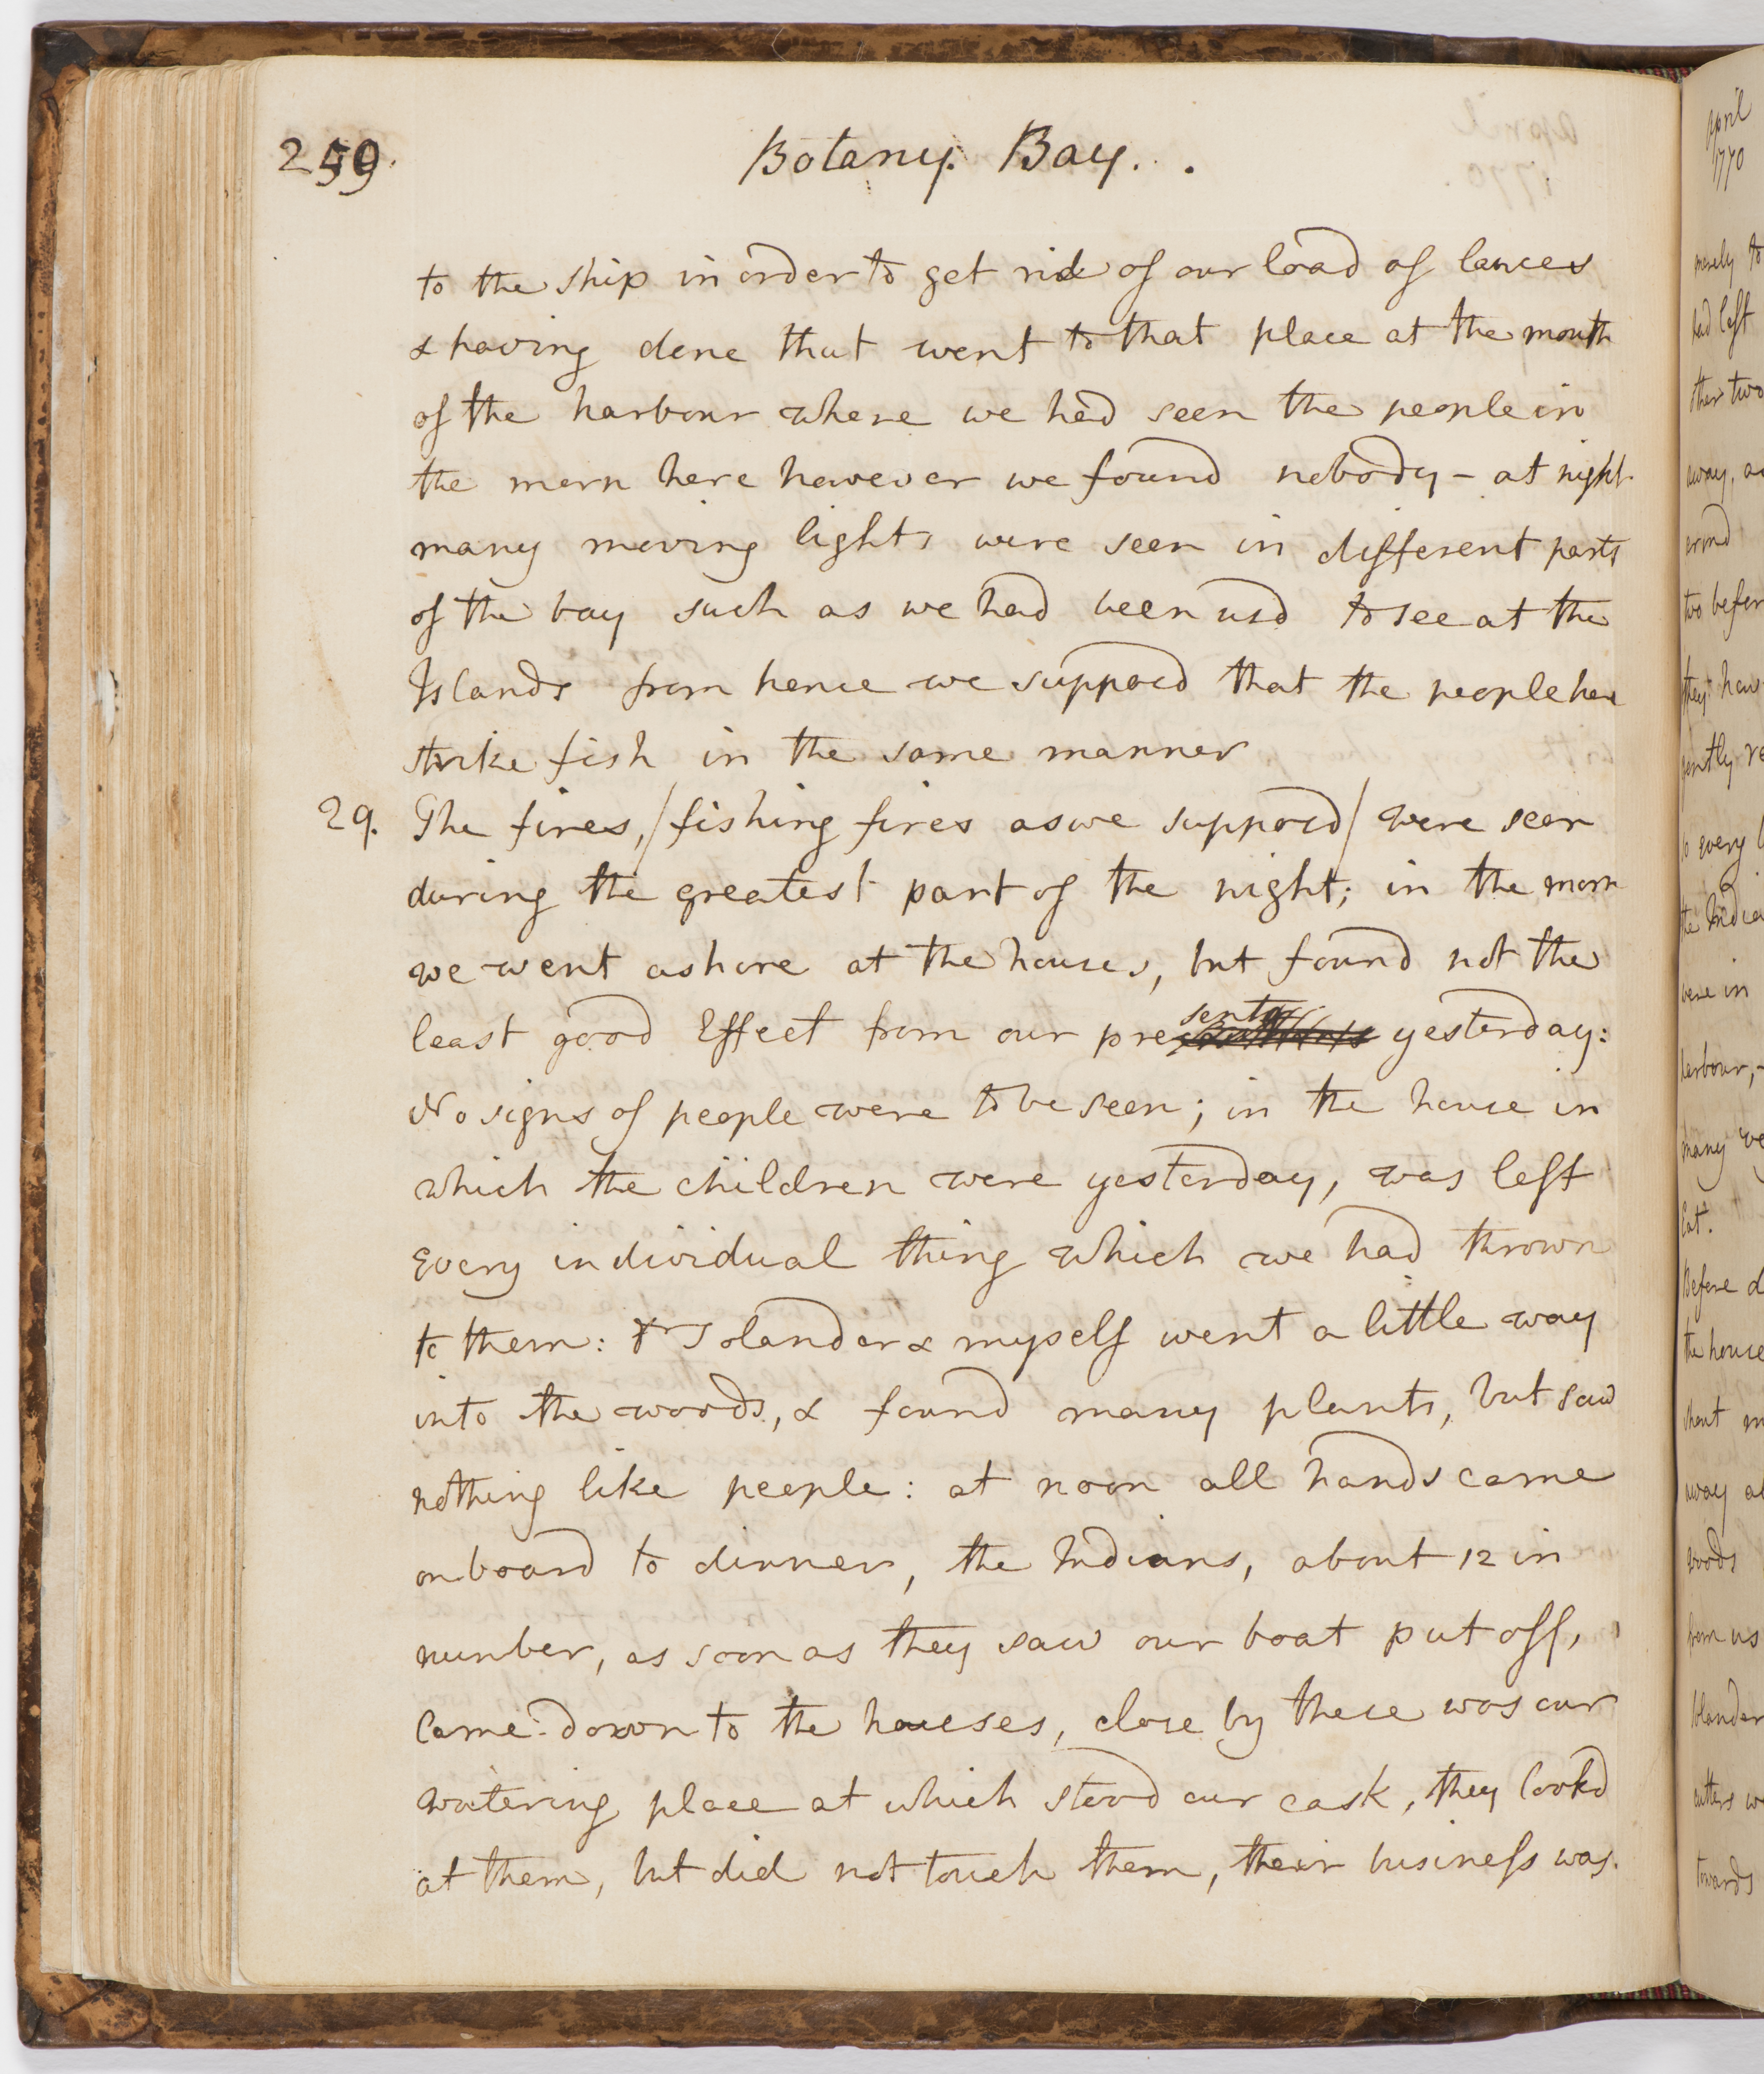 259.
Botany. Bay. .
to the ship in order to get rid of our load of lances
& having done that went to that place at the mouth
of the harbour where we had seen the people in
the morn here however we found nobody - at night
many moving lights were seen in different parts
of the bay such as we had been usd to see at the
Islands from hence we supposd that the people here
strike fish in the same manner
29. The fires, / fishing fires as we supposd / were seen
during the greatest part of the night; in the morn
we went ashore at the houses, but found not the
least good Effect from our presents yesterday:
No signs of people were to be seen; in the house in
which the children were yesterday, was left
every individual thing which we had thrown
to them: Dr Solander & myself went a little way
into the woods, & found many plants, but saw
nothing like people: at noon all hands came
on board to dinner, the Indians, about 12 in
number, as soon as they saw our boat put off,
Came down to the houses, close by these was our
watering place at which stood our cask, they lookd
at them, but did not touch them, their business was.
April
1770
merely to
had left
other two
away,
two
they
gently
so every
the
were in
harbour,
many
Eat.
Before
the house
away
woods
from us
towards